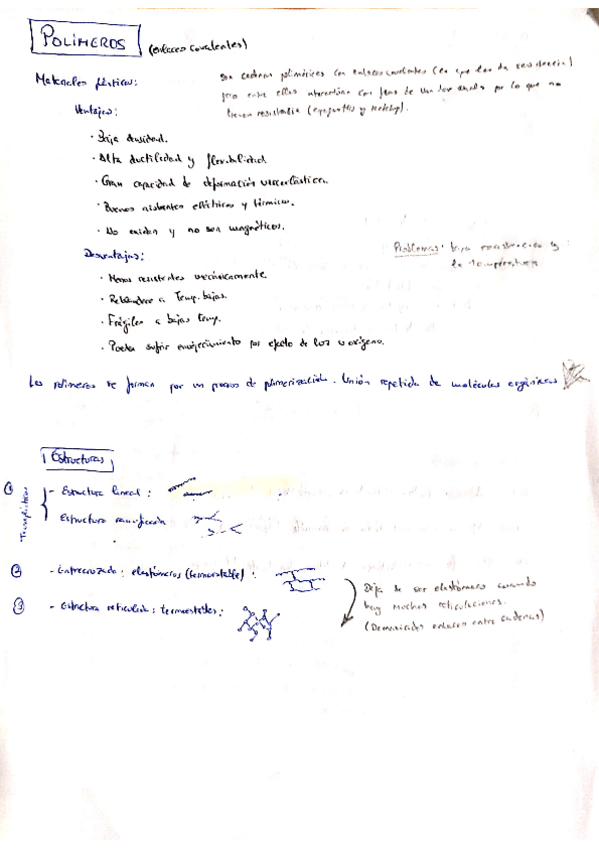 POLIMEROS (enlaces covalentes)
Son cadenas poliméricas con enlaces covalentes (lo que les da resistencia)
Materiales plásticos:
pero entre ellas interactúan con fzas de Van der Waals por lo que no
tienen resistencia
Ventajas:
· Baja densidad.
· Alta ductilidad y flexibilidad
· Gran capacidad de deformación viscoelástica.
· Buenos aislantes eléctricos y térmicos.
· No oxidan y no son magnéticos.
Desventajas:
Problemas: baja
la temperatura
· Menos resistentes mecánicamente.
· a Temp. bajas.
· Frágiles a bajas temp.
· Poder sufrir envejecimiento por efecto de luz u oxígeno.
Los polímeros se forman por un proceso de polimerización. Unión repetida de moléculas orgánicas
Estructuras
① - Estructura lineal:
Termoplásticos
Estructura ramificación
② - Entrecruzada: elastómeros (termoestable):
③ - Estructura reticulada: termoestables:
Deja de ser elastómero cuando
hay muchas reticulaciones.
(Demasiados enlaces entre cadenas)